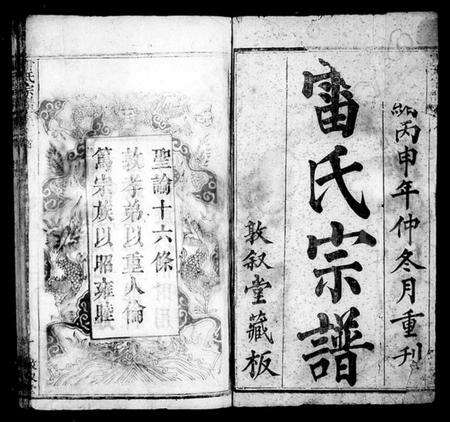 丙申年仲冬月重刊
甯氏宗譜
敦叙堂藏板
聖諭十六條
敦孝弟以重人倫
篤宗族以昭雍睦